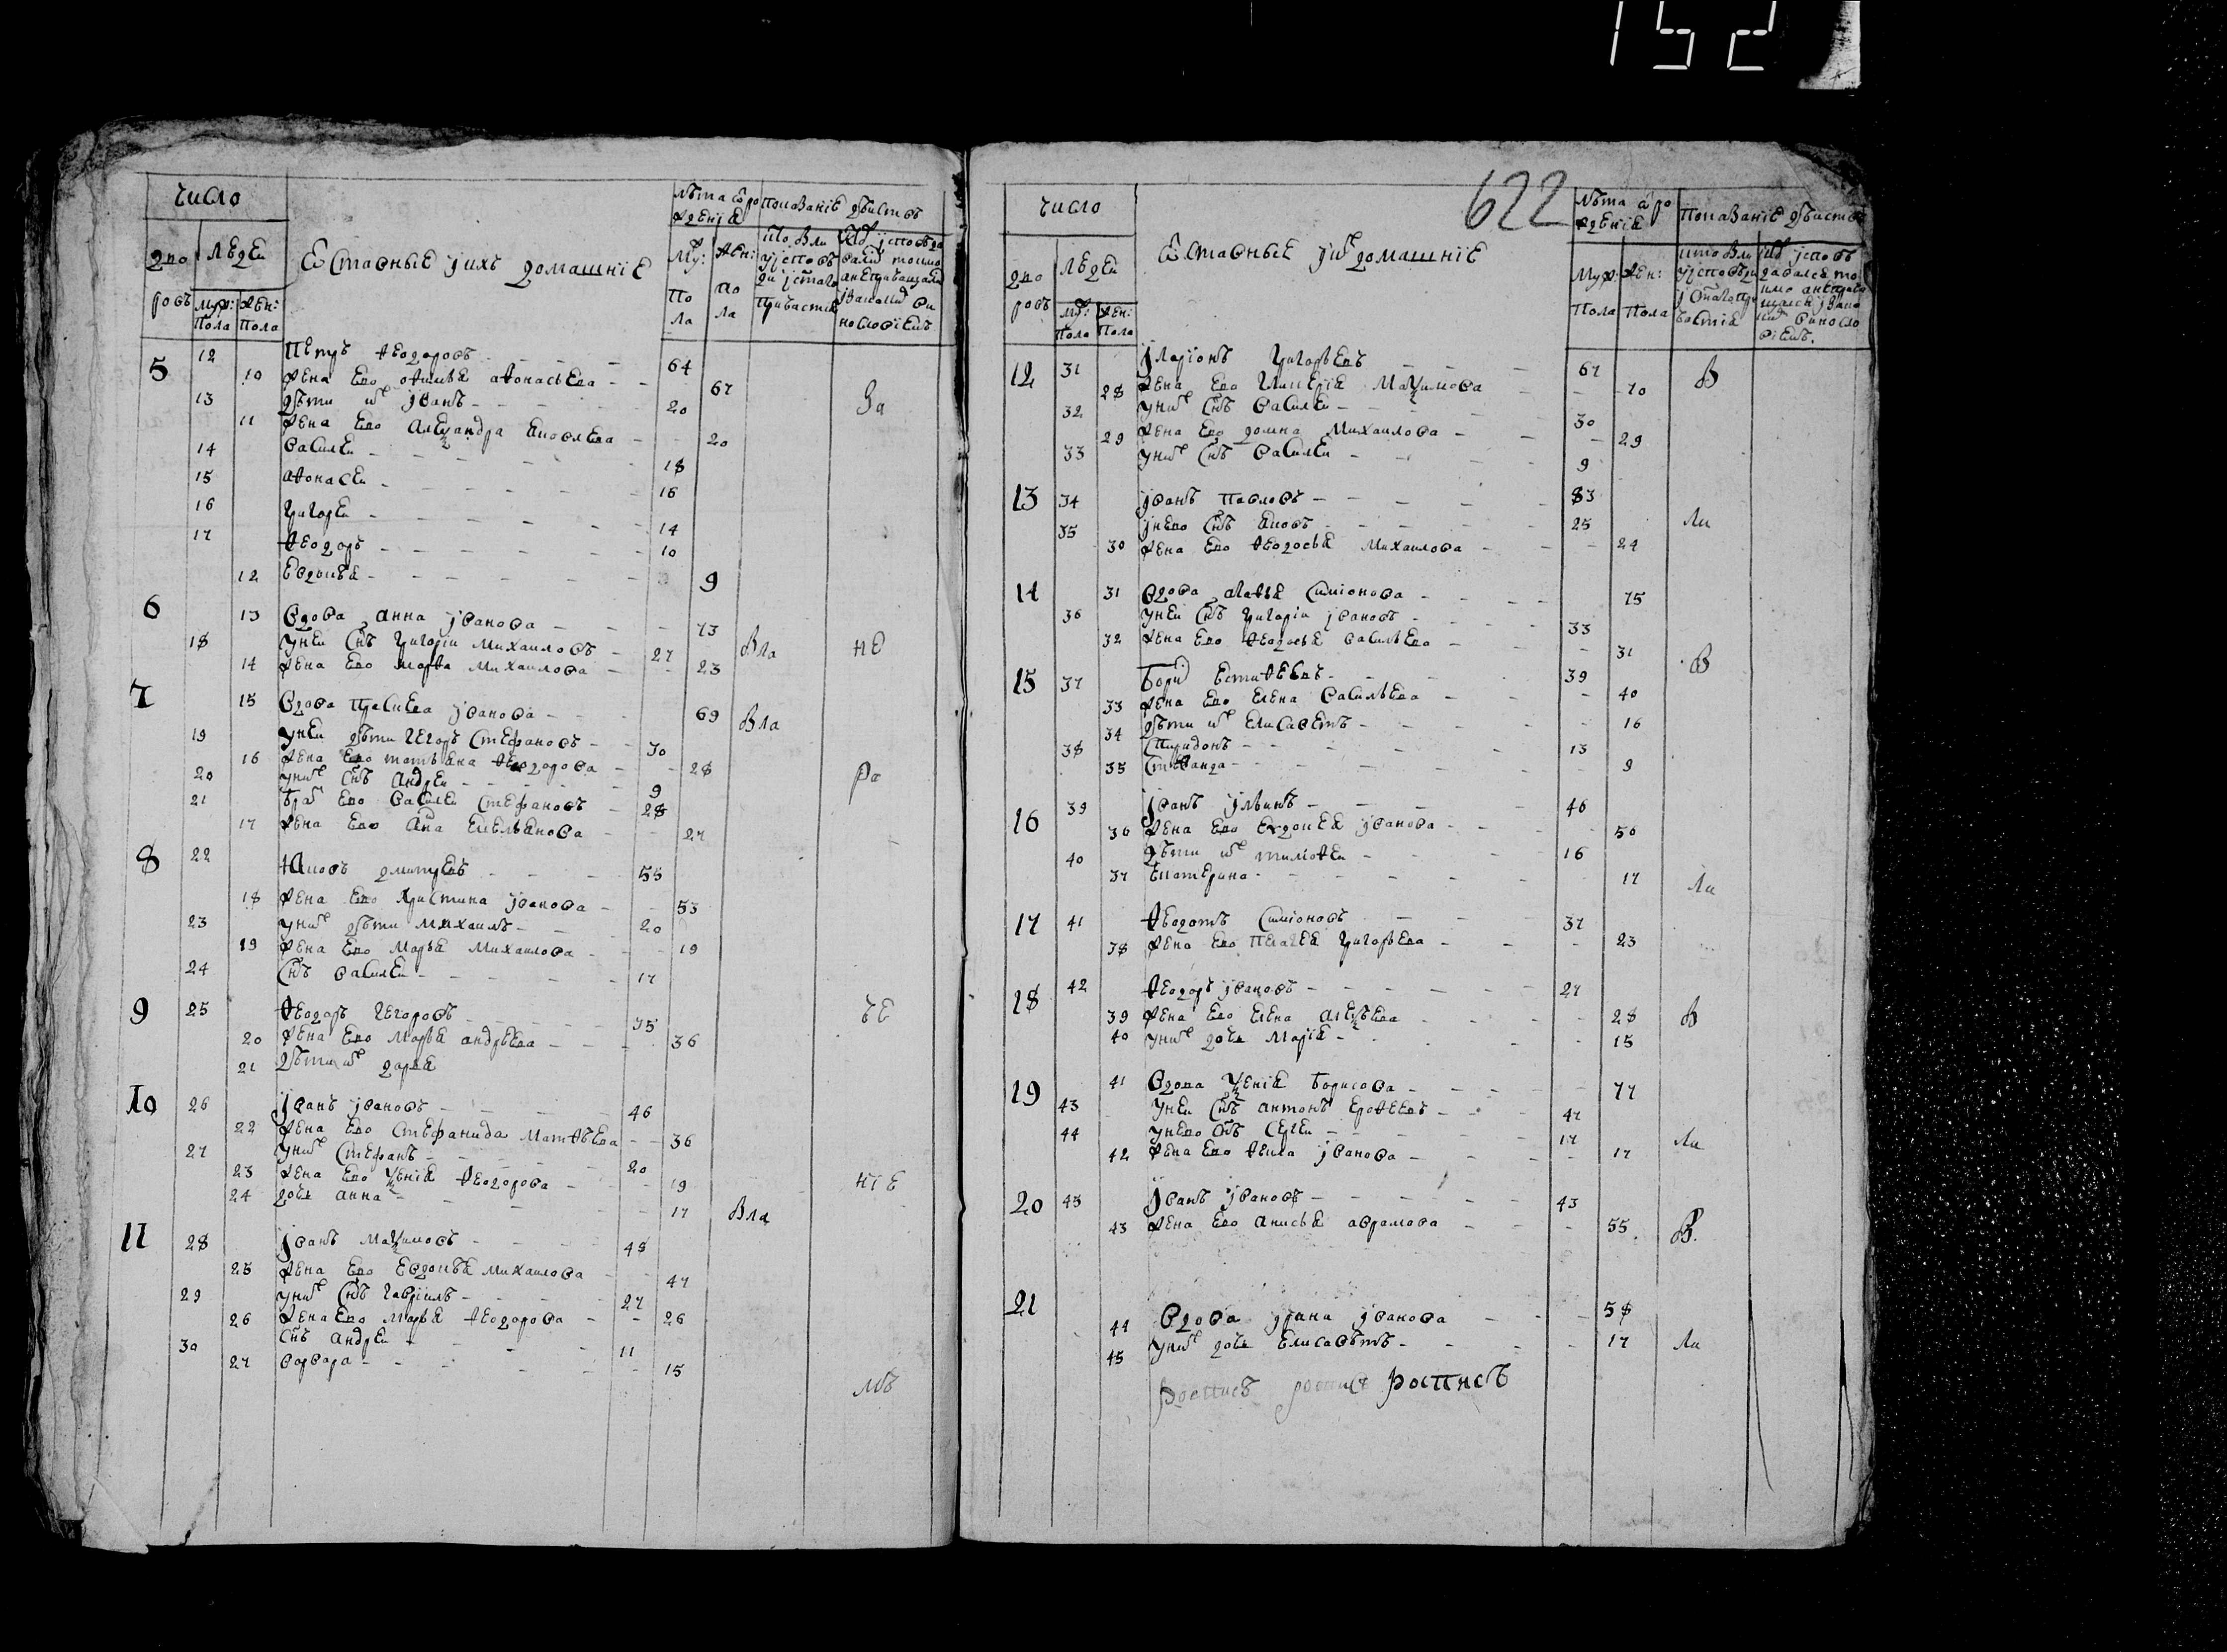 152
Число
Дво
ровъ
Людей
Муж:
Пола
Жен:
Пола
Ѡставные јихъ домашнїе
Лѣта ѿ ро
жденїѧ
Му:
По
ла
Жен:
По
ла
Показанїе дѣиствъ
5 12 Петръ Ѳеодоровъ 64
10 жена ево Аѳонасьева 67
13 дѣти их јванъ 20 За
11 жена ево Алеѯандра Яковлева 20
14 Василеи 18
15 Аѳонасеи 16
16 Григореи 14
17 Ѳеодоръ 10
12 Евдокъѧ 9
6 13 Вдова Анна јванова 73
18 унеи снъ Григоріи Михаиловъ 27 Вла не
14 жена ево Марѳа Михаилова 23
7 15 Вдова Прасковья јванова 69 Вла
19 унеи дѣти Егоръ Стефановъ 30
16 жена ево татьѧна Ѳеодорова 28
20 уних снъ Андреи 9 ра
21 брат ево Василеи Стефановъ 28
17 жена ево Ана Емельѧнова 27
8 22 Яковъ дмитревъ 55
18 жена ево Христина јванова 53
23 уних дѣти Михаилъ 20
19 жена ево Марьѧ Михаилова 19
24 Снъ Василеи 17
9 25 Ѳеодоръ Егоровъ 35 че
20 жена ево Марьѧ андрѣева 36
21 Дѣти их дарьѧ
10 26 јванъ јвановъ 46
22 жена ево Стефанида Матѳѣева 36
27 уних Стефанъ 20
23 жена ево Ѯенїѧ Ѳеодорова 19 нїе
24 дочь анна 17 Вла
11 28 јванъ Маѯимовъ 48
25 жена ево Евдокьѧ Михаилова 47
29 уних Снъ Гавріилъ 27
26 жена ево Марьѧ Ѳеодорова 26
30 Снъ Андреи 11
27 Варвара 15
мъ
622
Число
Дво
ровъ
Людей
Му:
Пола
Жен:
Пола
Ѡставные јих домашнїе
Лѣта ѿ ро
жденїѧ
Муж:
Пола
Жен:
Пола
Показанїе дѣиствъ
12 31 јларіонъ Григорьевъ 67 В
28 жена ево Гликерїѧ Маѯимова 70
32 уних Снъ Василеи 30
29 жена ево домна Михаилова 29
33 уних Снъ Василеи 9
13 34 јванъ Павловъ 83
35 јнево Снъ Яковъ 25 Ли
30 жена ево Ѳеодосьѧ Михаилова 24
14 31 Вдова агаѳьѧ Симіонова 75
36 унеи Снъ Григоріи јвановъ 33
32 жена ево Ѳеодосьѧ Васильево 31 В
15 37 Борис Естиѳеевъ 39
33 жена ево Елена Васильева 40
34 дѣти их Елисаветъ 16
38 Спиридонъ 13
35 9
16 39 јванъ јльинъ 46
36 жена ево Евдокеѧ јванова 50
40 дѣти их тимоѳеи 16
37 Екатерина 17 Ли
17 41 Ѳеодотъ Симіоновъ 37
38 жена ево Пелагеѧ Григорьева 23
18 42 Ѳеодоръ јвановъ 27
39 жена ево Елена Алеѯѣева 28 В
40 уних дочь Марїѧ 15
19 41 Вдова Ѯенїѧ Борисова 77
43 унеи Снъ антонъ Ероѳеевъ 47
44 унево Снъ Сергеи 17 Ли
42 жена ево Ѳекла јванова 17
20 45 јванъ јвановъ 43
43 жена ево Анисьѧ аврамова 55 В.
21 44 Вдова јрина јванова 58
45 уних дочь Елисаветъ 17 Ли
роспись роспись роспись